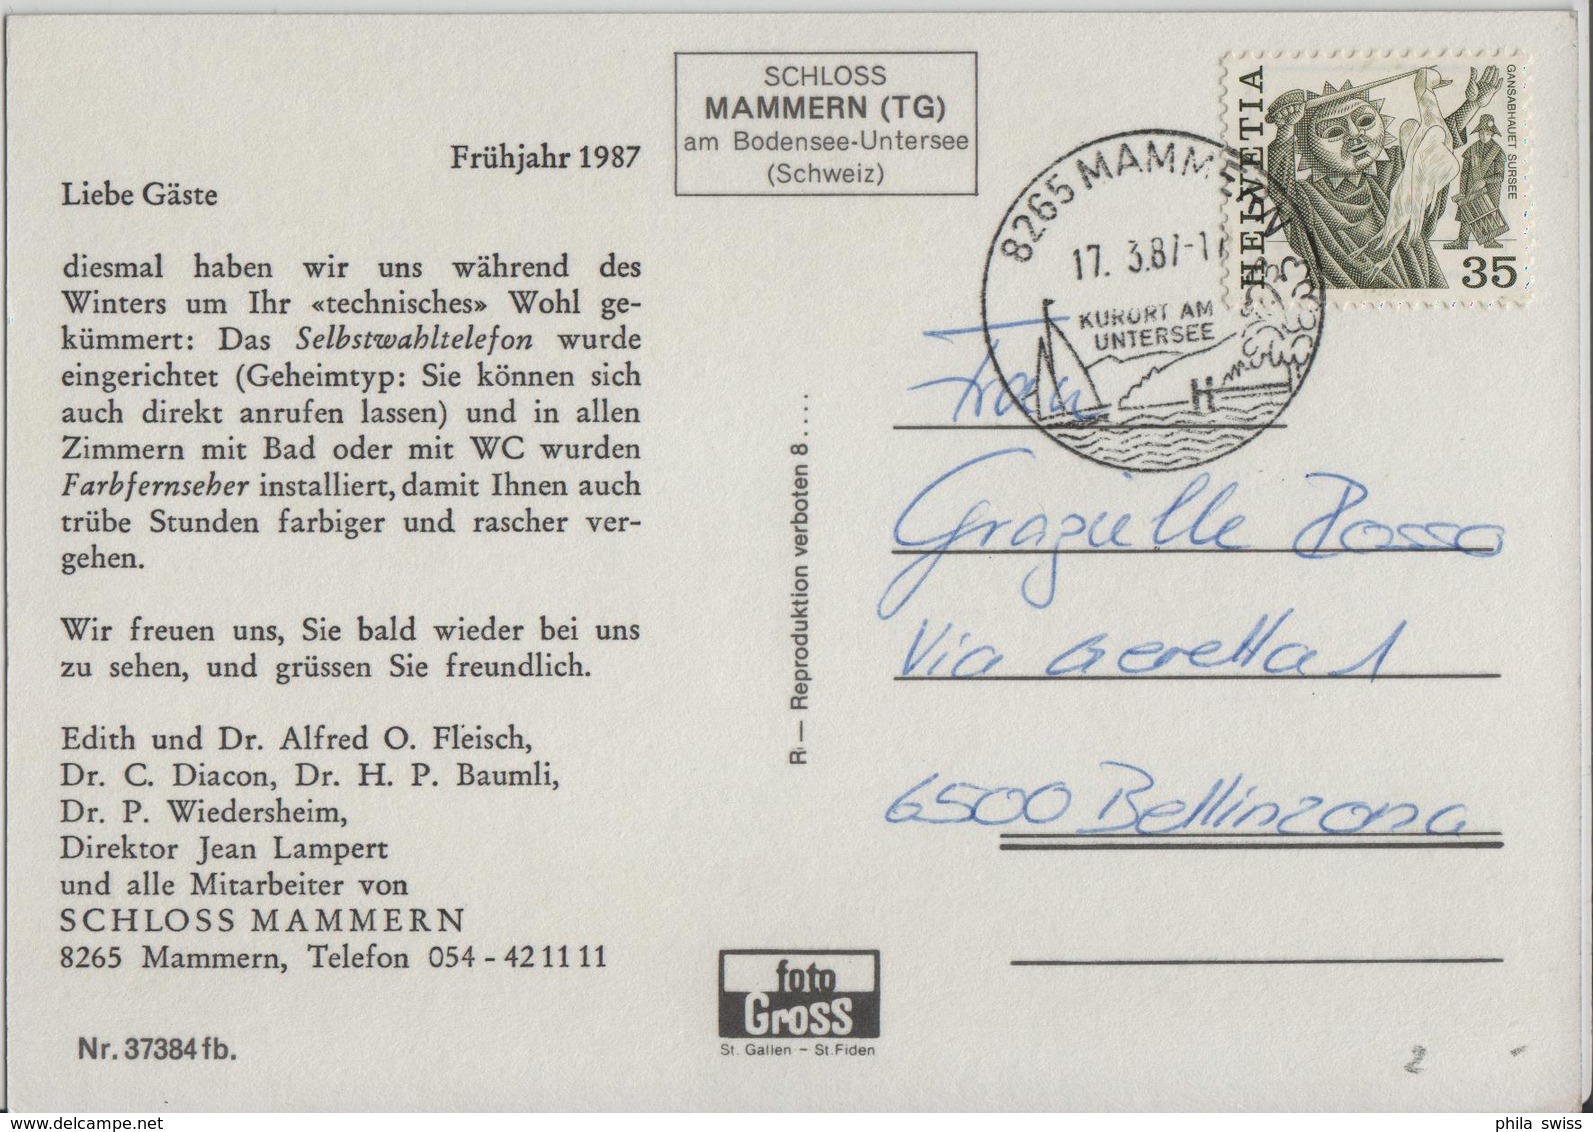 SCHLOSS
MAMMERN (TG)
am Bodensee-Untersee
(Schweiz)
Frühjahr 1987
Liebe Gäste
diesmal haben wir uns während des
Winters um Ihr «technisches» Wohl ge-
kümmert: Das Selbstwahltelefon wurde
eingerichtet (Geheimtyp: Sie können sich
auch direkt anrufen lassen) und in allen
Zimmern mit Bad oder mit WC wurden
Farbfernseher installiert, damit Ihnen auch
trübe Stunden farbiger und rascher ver-
gehen.
Wir freuen uns, Sie bald wieder bei uns
zu sehen, und grüssen Sie freundlich.
Edith und Dr. Alfred O. Fleisch,
Dr. C. Diacon, Dr. H. P. Baumli,
Dr. P. Wiedersheim,
Direktor Jean Lampert
und alle Mitarbeiter von
SCHLOSS MAMMERN
8265 Mammern, Telefon 054 - 42 11 11
Nr. 37384 fb.
R — Reproduktion verboten 8....
foto
Gross
St. Gallen - St. Fiden
HELVETIA
GANSABHAUET SURSEE
35
8265 MAMMERN
17. 3.87-1
KURORT AM
UNTERSEE
Frau
Grazielle Rosso
Via Geretta 1
6500 Bellinzona
2
phila swiss